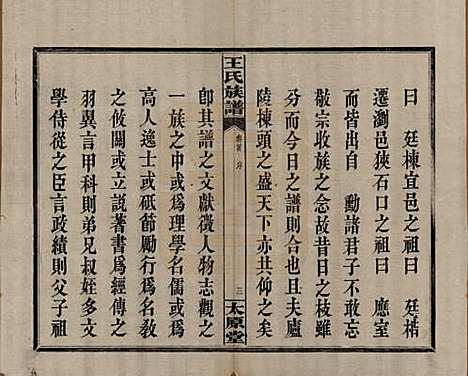 曰 廷棟宜邑之祖曰 廷楷
遷瀏邑狹石口之祖曰 應室
而皆出自 勳諸君子不敢忘
敬宗收族之念故昔日之枝雖
分而今日之譜則合此安夫廬
陵棟頭之盛天下亦共襲之矣
王氏族譜
卷首 序
三
太原堂
卽其譜之文獻徵人物志觀之
一族之中或爲理學名儒或爲
高人逸士或砥節勵行爲名教
之攸關或立說著書爲經傳之
羽翼言甲科則弟兄叔姪多文
學侍從之臣言政績則父子祖